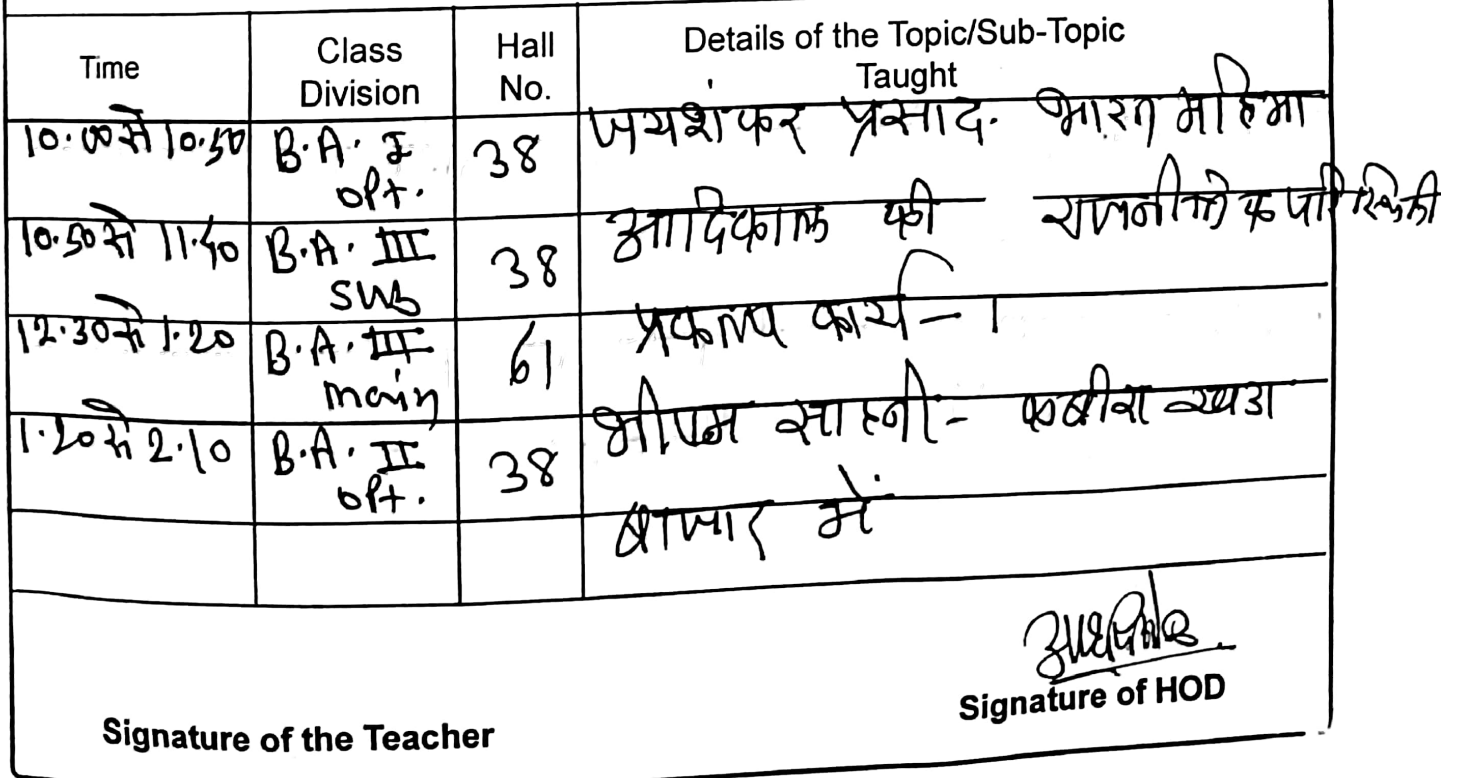 Time Class Division Hall No. Details of the Topic/Sub-Topic Taught
10.00 से 10.50 B.A. I opt. 38 जयशंकर प्रसाद. भारत महिमा
10.50 से 11.40 B.A. III sub 38 आदिकाल की राजनीतिक परिस्थिती
12.30 से 1.20 B.A. III main 61 प्रकल्प कार्य - 1
1.20 से 2.10 B.A. II opt. 38 भीष्म साहनी - कबीरा खडा
बाजार में
Signature of HOD
Signature of the Teacher